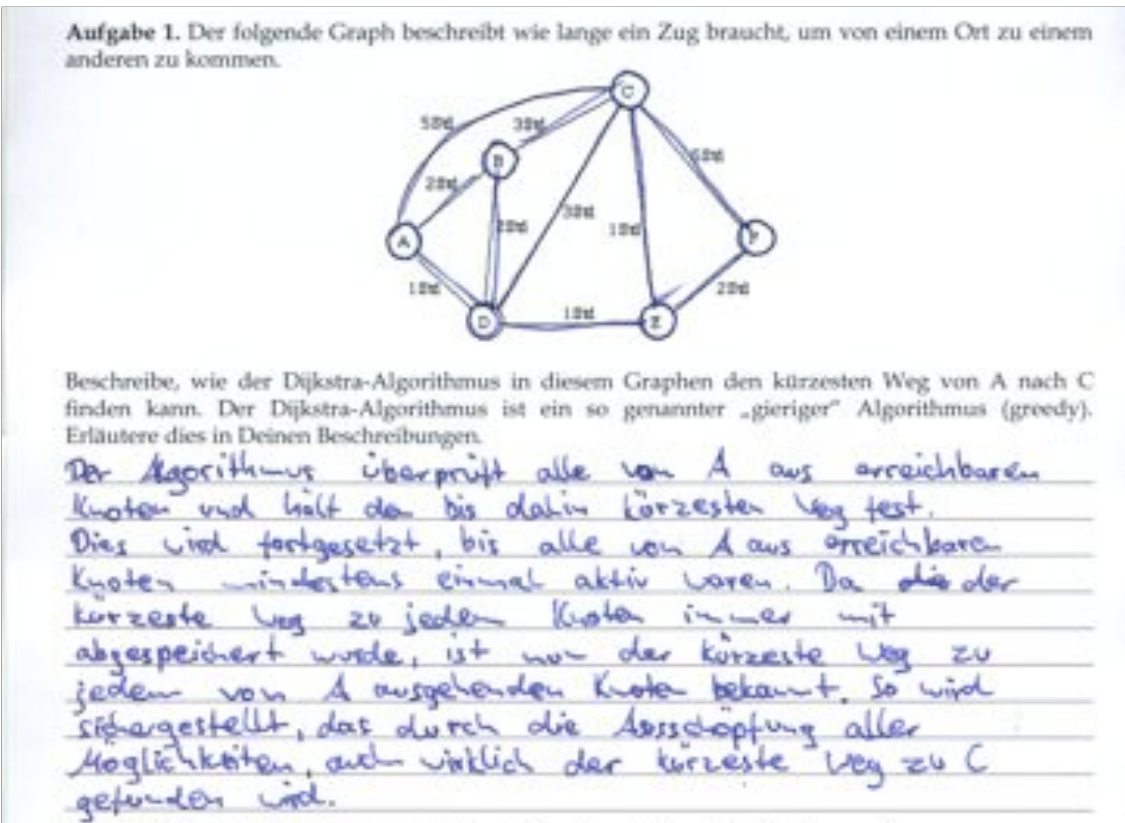 Aufgabe 1. Der folgende Graph beschreibt wie lange ein Zug braucht, um von einem Ort zu einem
anderen zu kommen.
C
5Std
3Std
B
5Std
2Std
3Std
2Std
1Std
A
F
1Std
2Std
1Std
D
E
Beschreibe, wie der Dijkstra-Algorithmus in diesem Graphen den kürzesten Weg von A nach C
finden kann. Der Dijkstra-Algorithmus ist ein so genannter „gieriger" Algorithmus (greedy).
Erläutere dies in Deinen Beschreibungen.
Der Algorithmus überprüft alle von A aus erreichbaren
Knoten und hält den bis dahin kürzesten Weg fest.
Dies wird fortgesetzt, bis alle von A aus erreichbaren
Knoten mindestens einmal aktiv waren. Da der
kürzeste Weg zu jedem Knoten immer mit
abgespeichert wurde, ist nun der kürzeste Weg zu
jedem von A ausgehenden Knoten bekannt. So wird
sichergestellt, das durch die Ausschöpfung aller
Möglichkeiten, auch wirklich der kürzeste Weg zu C
gefunden wird.